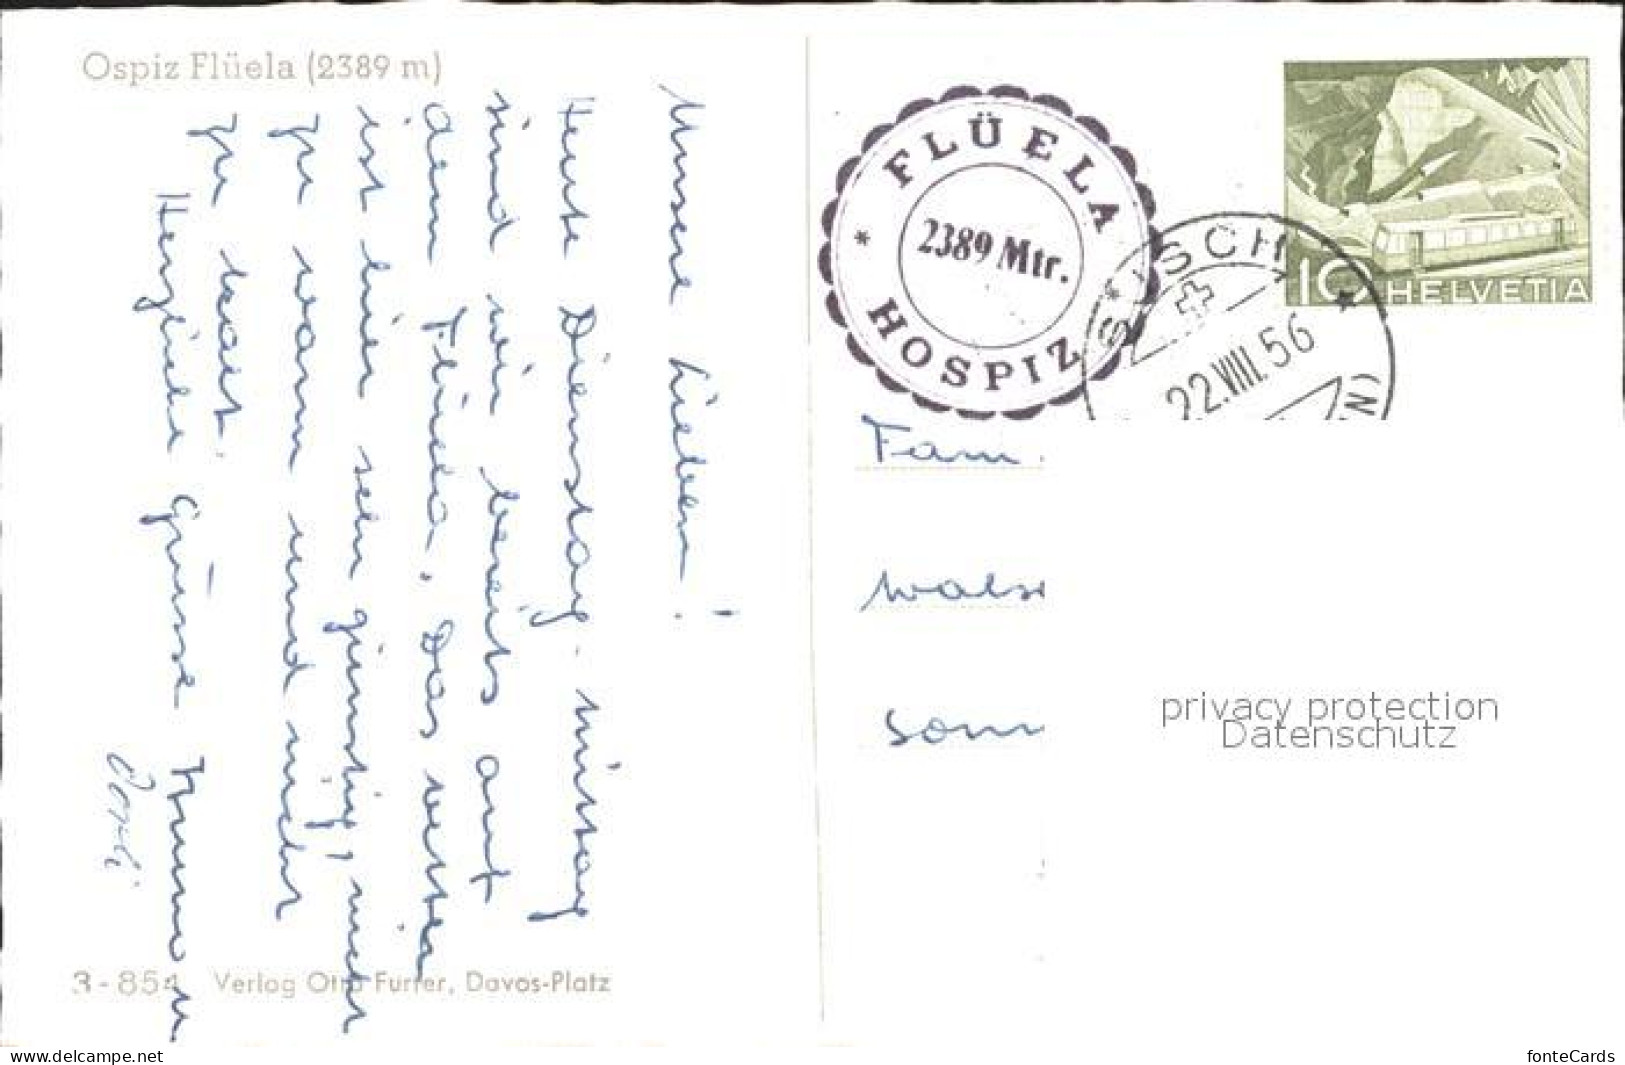 Ospiz Flüela (2389 m)
Unsere Lieben!
Heute Dienstag-mittag
sind wir bereits auf
dem Flüela. Das Wetter
ist hier sehr günstig, nicht
zu warm und nicht
zu kalt.
Herzliche Grüsse
Dorli
3-854 Verlag Otto Furter, Davos-Platz
FLÜELA
2389 Mtr.
HOSPIZ
SÜSCH
22.VIII.56
10 HELVETIA
Fam.
privacy protection
Datenschutz
www.delcampe.net
fonteCards